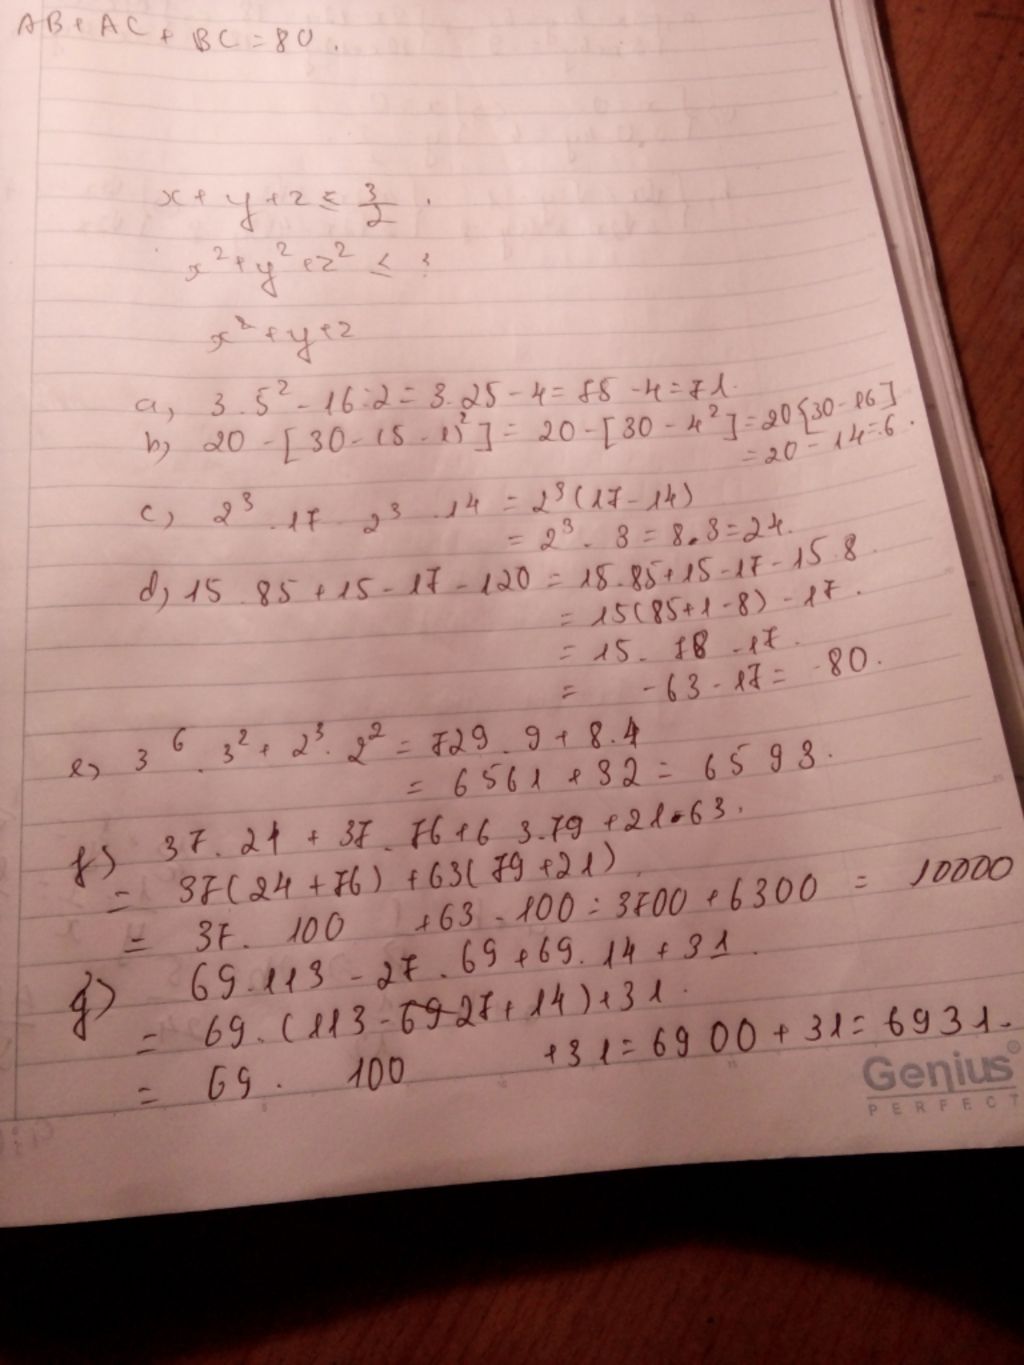 AB + AC + BC = 80.
x + y + z ≤ 3/2.
x² + y² + z² ≤ ?
x² + y + z
a, 3.5² - 16:2 = 3.25 - 4 = 75 - 4 = 71.
b, 20 - [30 - (5 - 1)²] = 20 - [30 - 4²] = 20 [30 - 16]
= 20 - 14 = 6.
c, 2³ . 17 - 2³ . 14 = 2³(17 - 14)
= 2³ . 3 = 8.3 = 24.
d, 15 . 85 + 15 - 17 - 120 = 15.85 + 15 - 17 - 15.8
= 15(85 + 1 - 8) - 17.
= 15. 78 - 17.
= -63 - 17 = -80.
e, 3⁶ . 3² + 2³ . 2² = 729 . 9 + 8.4
= 6561 + 32 = 6593.
f) 37. 24 + 37. 76 + 63.79 + 21.63.
= 37(24 + 76) + 63(79 + 21).
= 37. 100 + 63 . 100 = 3700 + 6300 = 10000
g) 69.113 - 27 . 69 + 69. 14 + 31.
= 69.(113 - 69 27 + 14) + 31.
= 69 . 100 + 31 = 6900 + 31 = 6931.
Genius®
PERFECT